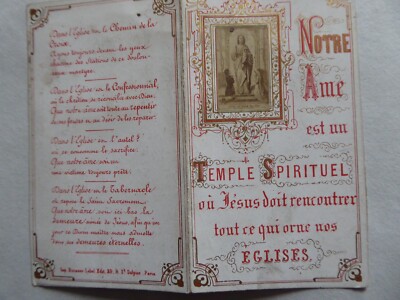 Dans l'Eglise on le Chemin de la
Croix
Ayons toujours devant les yeux
Dans l'Eglise on le Confessionnal,
où le chrétien se réconcilie avec Dieu.
Que notre âme soit toute au repentir
de ses fautes et au désir de les réparer.
Dans l'Eglise on l'autel!
où se consomme le sacrifice.
Que notre âme soit un
victime toujours prête!
Dans l'Eglise on le Tabernacle
où repose le Saint Sacrement
Que notre âme soit ici bas la
demeure aimée de Jésus, afin qu'un
jour ce Divin maître nous admette
dans ses demeures éternelles.
NOTRE
AME
est un
TEMPLE SPIRITUEL
où Jésus doit rencontrer
tout ce qui orne nos
EGLISES.